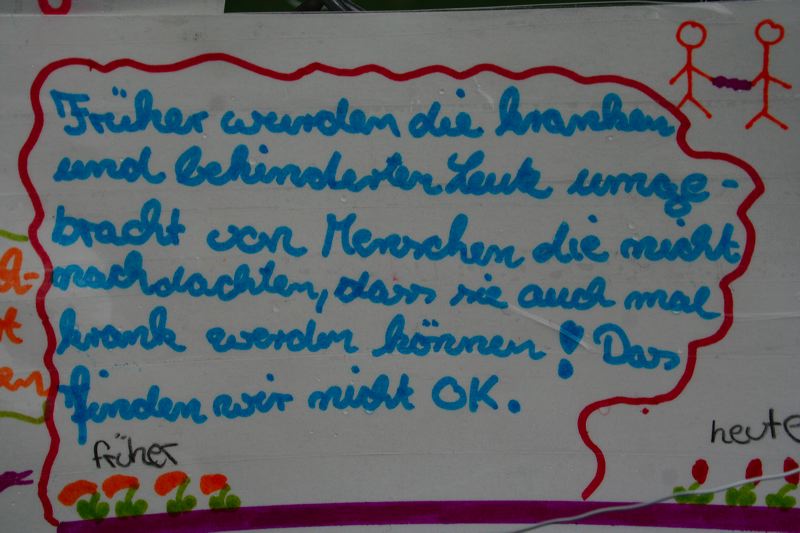 Früher wurden die kranken
und behinderten Leute umge-
bracht von Menschen die nicht
nachdachten, dass sie auch mal
krank werden können! Das
finden wir nicht OK.
früher
heute